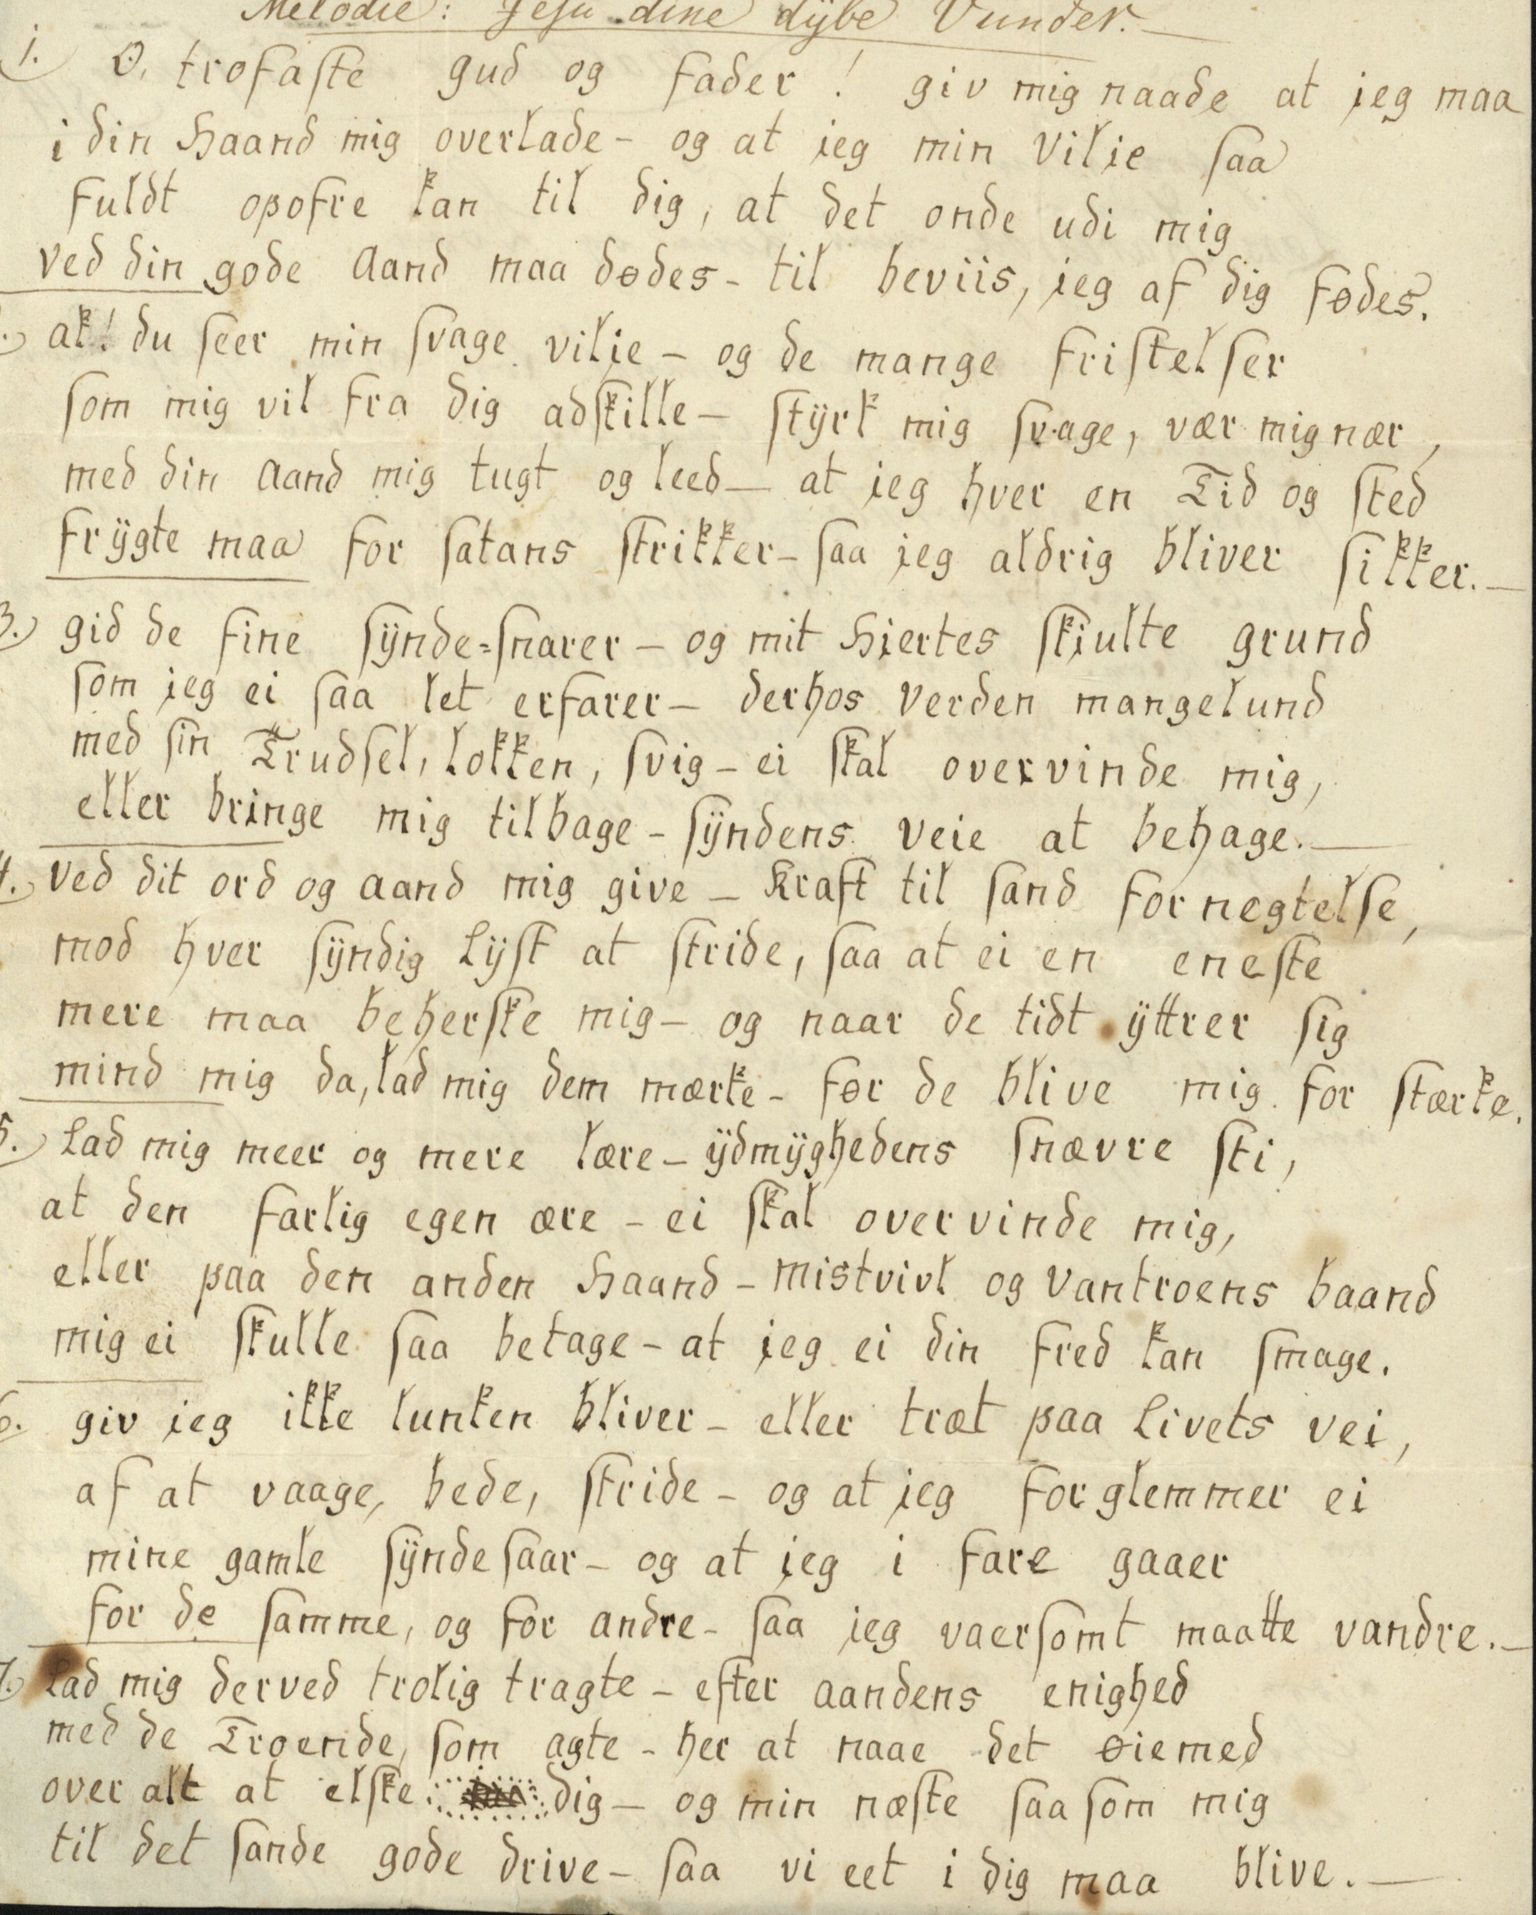 Melodie: Jesu dine dÿbe Vunder.—
1. O, trofaste gud og fader! giv mig naade at jeg maa
i din Haand mig overlade - og at jeg min vilie saa
fuldt opofre kan til dig, at det onde udi mig
ved din gode Aand maa dødes - til beviis, jeg af dig fødes.
ak! du seer min svage vilie - og de mange fristelser
som mig vil fra dig adskille - stÿrk mig svage, vær mig nær,
med din Aand mig tugt og leed - at jeg hver en Tid og sted
frÿgte maa for satans strikker - saa jeg aldrig bliver sikker.—
3. gid de fine sÿnde=snarer - og mit Hiertes skiulte grund
som jeg ei saa let erfarer - derhos verden mangelund
med sin Trudsel, lokken, svig - ei skal overvinde mig,
eller bringe mig tilbage - sÿndens veie at behage.—
4. ved dit ord og aand mig give - Kraft til sand fornegtelse,
mod hver sÿndig Lÿst at stride, saa at ei en eneste
mere maa beherske mig - og naar de tidt ÿttrer sig
mind mig da, lad mig dem mærke - før de blive mig for stærke.
5. Lad mig meer og mere lære - ÿdmÿghedens snævre sti,
at den farlig egen ære - ei skal overvinde mig,
eller paa den anden Haand - mistvivl og vantroens baand
mig ei skulle saa betage - at jeg ei din fred kan smage.
6. giv jeg ikke lunken bliver - eller træt paa Livets vei,
af at vaage, bede, stride - og at jeg forglemmer ei
mine gamle sÿnde saar - og at jeg i fare gaaer
for de samme, og for andre - saa jeg vaersomt maatte vandre.—
7. Lad mig derved trolig tragte - efter aandens enighed
med de Troende, som agte - her at naae det øiemed
over alt at elske dig - og min næste saa som mig
til det sande gode drive - saa vi eet i dig maa blive.—